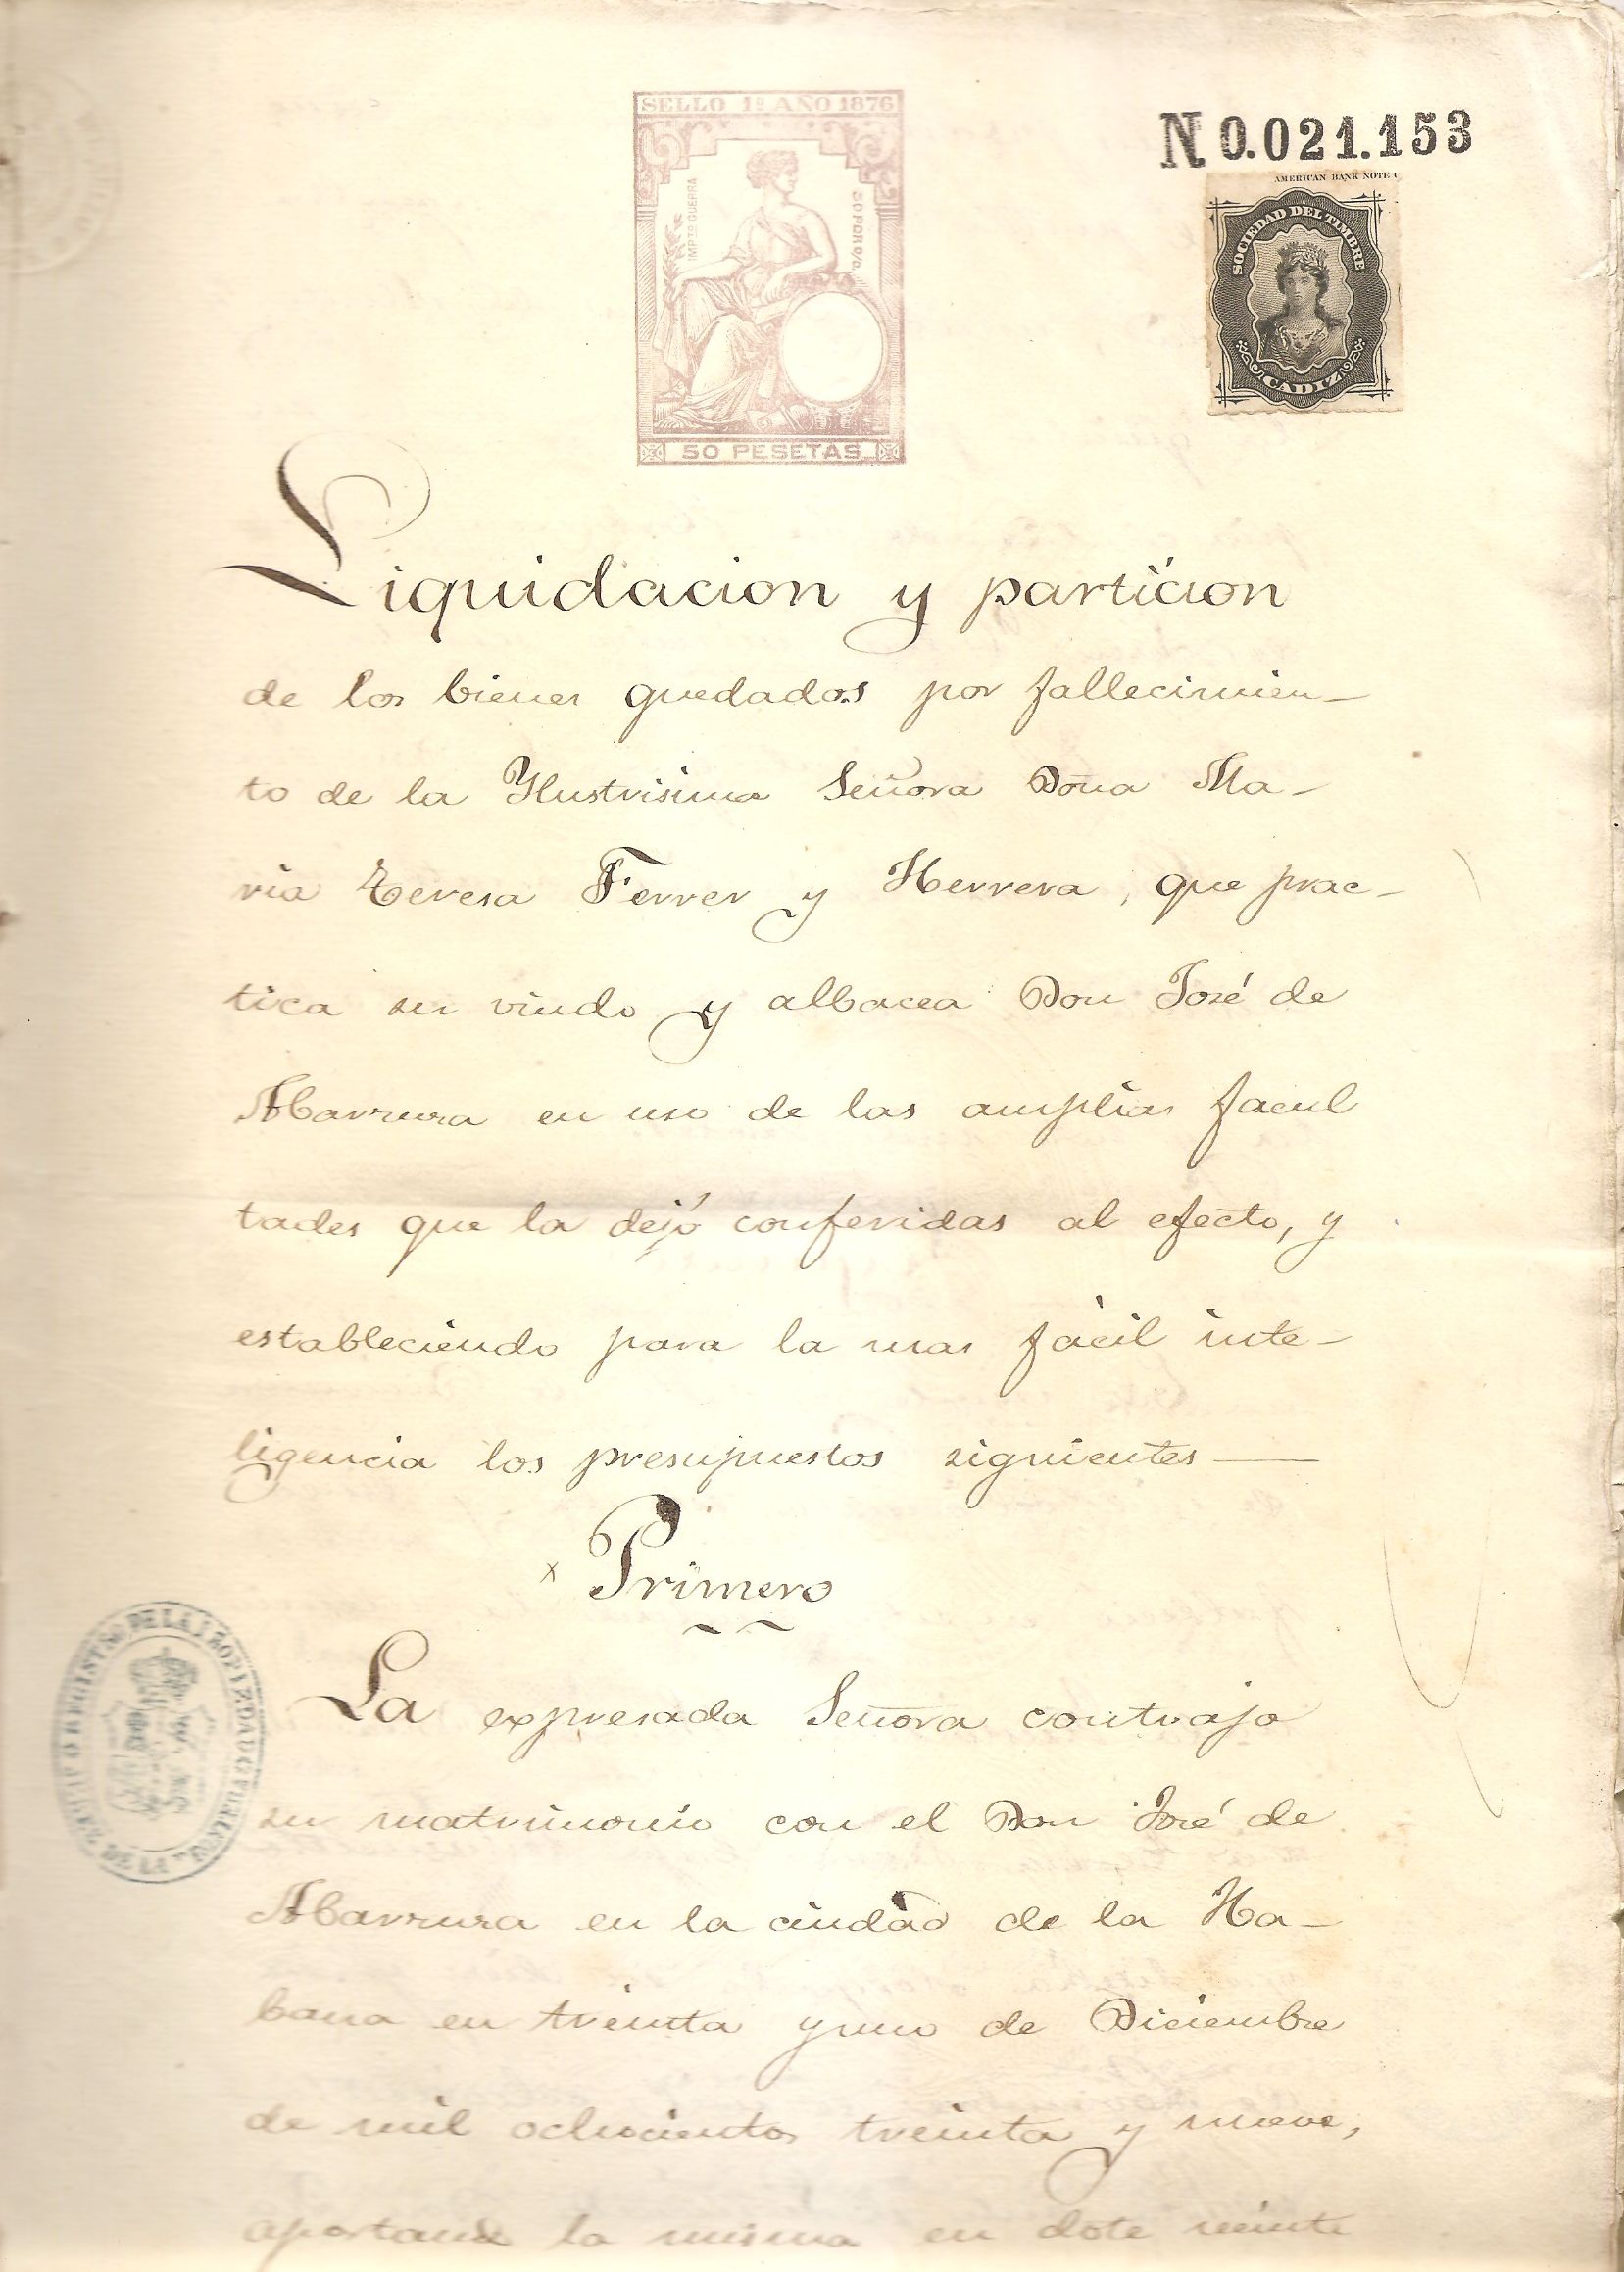 SELLO 1º AÑO 1876
IMPTO GUERRA
50 POR 0/0
50 PESETAS
N 0.021.153
AMERICAN BANK NOTE C
SOCIEDAD DEL TIMBRE
CADIZ
Liquidacion y particion
de los bienes quedados por fallecimien-
to de la Ylustrisima Señora Doña Ma-
ria Teresa Ferrer y Herrera, que prac-
tica su viudo y albacea Don José de
Abarzuza en uso de las amplias facul
tades que la dejó conferidas al efecto, y
estableciendo para la mas fácil inte-
ligencia los presupuestos siguientes
x Primero
REGISTRO DE LA PROPIEDAD
DE LA
La expresada Señora contrajo
su matrimonio con el Don José de
Abarzuza en la ciudad de la Ha-
bana en treinta y uno de Diciembre
de mil ochocientos treinta y nueve,
aportando la misma en dote veinte